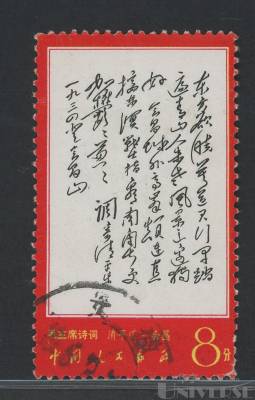 东方欲晓莫道君行早踏
遍青山人未老风景这边独
好会昌城外高峰颠连直
接东溟战士指看南粤更
加郁郁葱葱 调寄清平乐
一九三四登会昌山
毛主席诗词 清平乐 会昌
中国人民邮政 8分
UNIVERSE